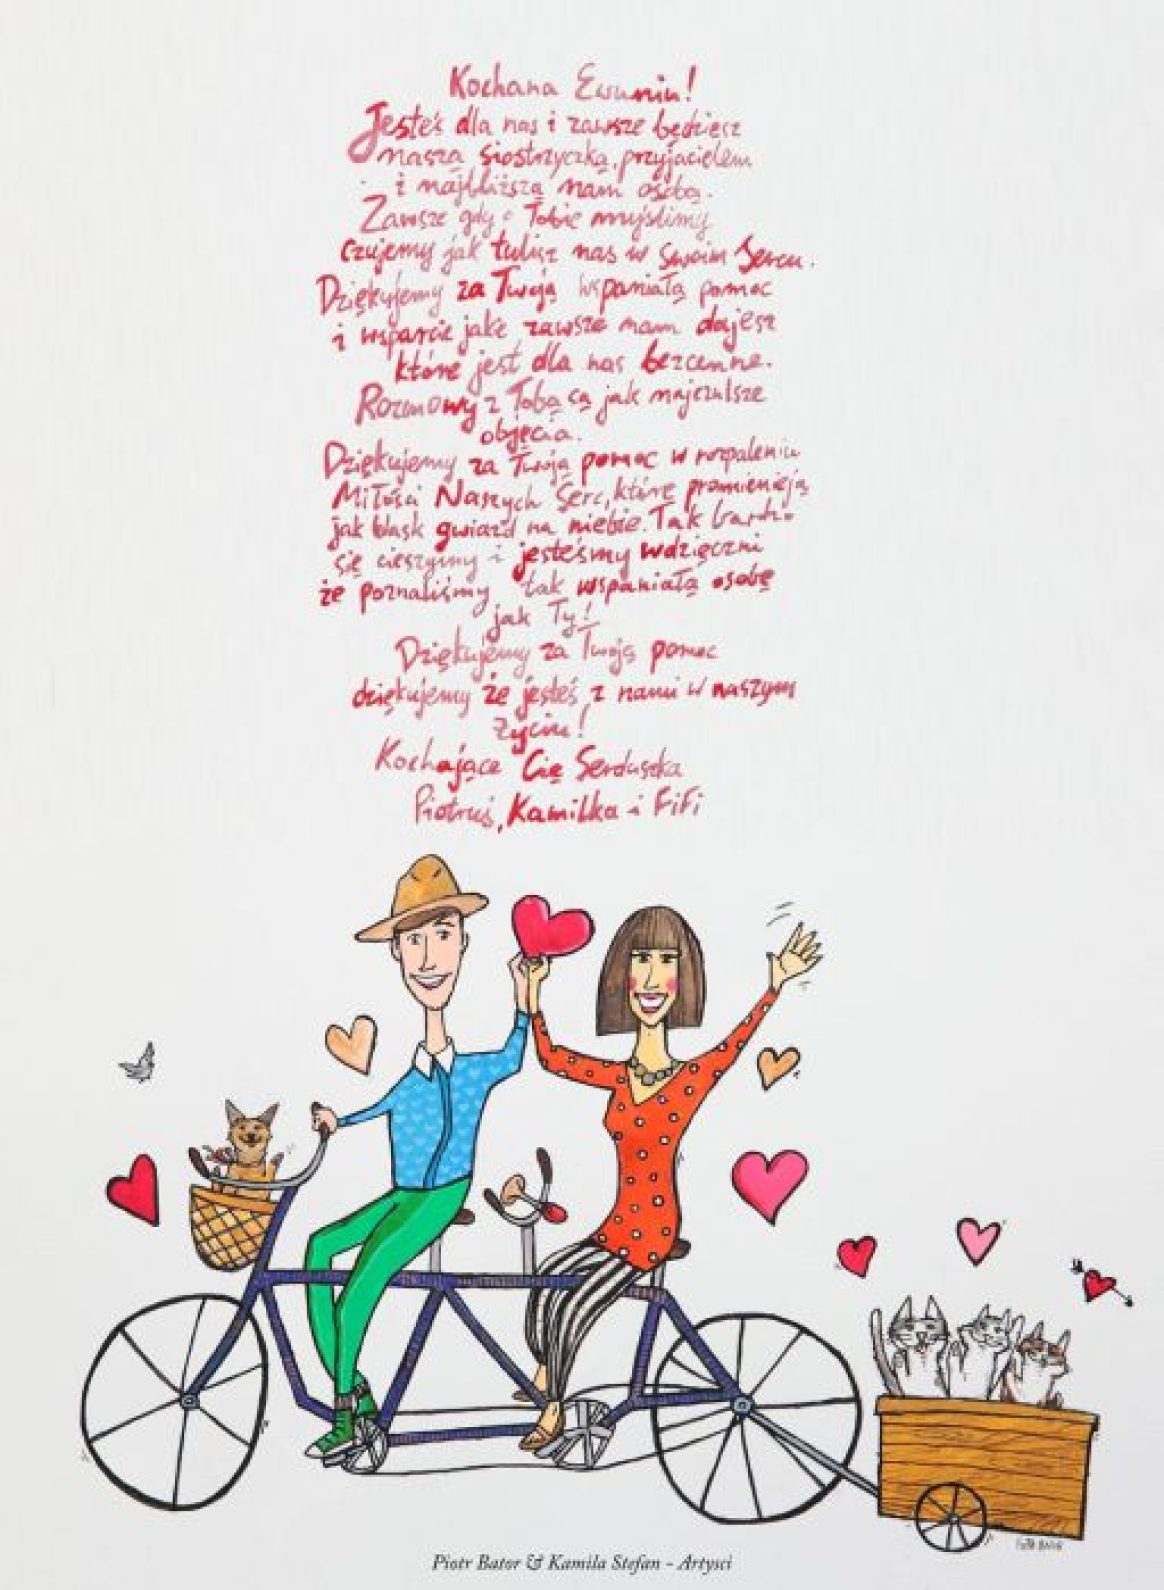 Kochana Ewuniu!
Jesteś dla nas i zawsze będziesz
naszą siostrzyczką, przyjacielem
i najbliższą nam osobą.
Zawsze gdy o Tobie myślimy
czujemy jak tulisz nas w swoim Sercu.
Dziękujemy za Twoją wspaniałą pomoc
i wsparcie jakie zawsze nam dajesz
które jest dla nas bezcenne.
Rozmowy z Tobą są jak najczulsze
objęcia.
Dziękujemy za Twoją pomoc w rozpaleniu
Miłości Naszych Serc, które promienieją
jak blask gwiazd na niebie. Tak bardzo
się cieszymy i jesteśmy wdzięczni
że poznaliśmy tak wspaniałą osobę
jak Ty!
Dziękujemy za Twoją pomoc
dziękujemy że jesteś z nami w naszym
życiu!
Kochające Cię Serduszka
Piotruś, Kamilka i FiFi
Piotr Bator & Kamila Stefan - Artyści